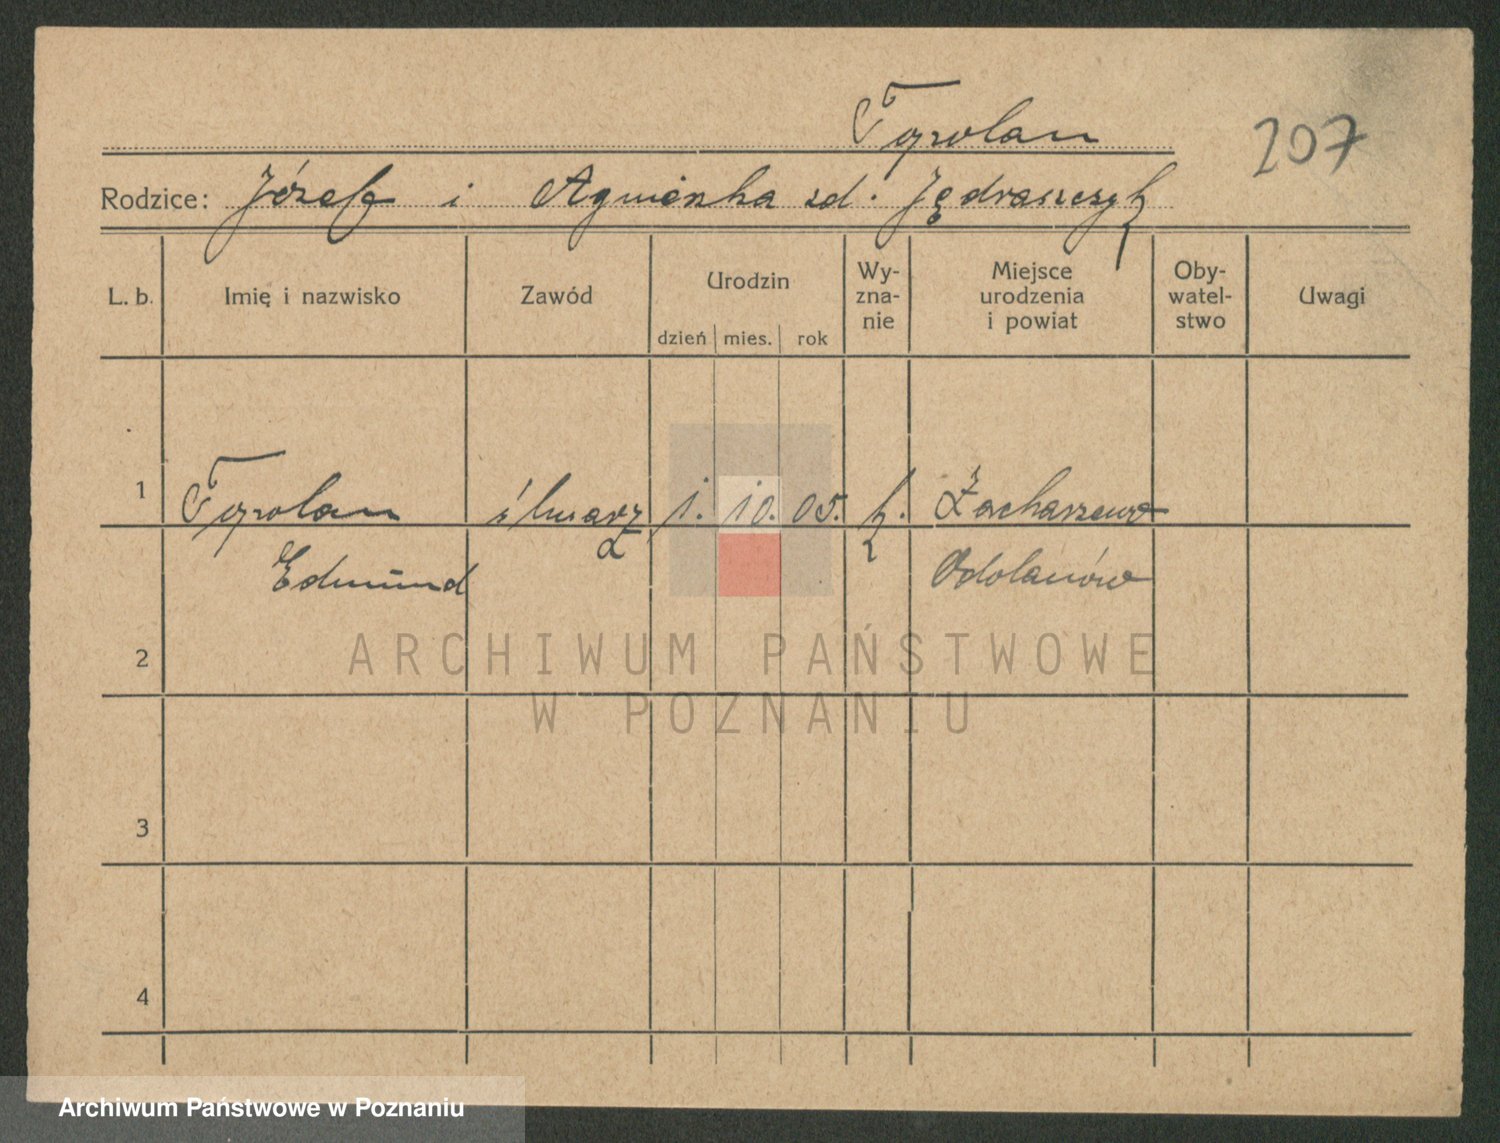 Tyrolan
207
Rodzice: Józef i Agnieszka zd. Jędraszczyk
L. b. Imię i nazwisko Zawód Urodzin dzień mies. rok Wy-zna-nie Miejsce urodzenia i powiat Oby-watel-stwo Uwagi
1 Tyrolan ślusarz 1. 10. 05. k. Zacharzewo
Edmund Odolanów
2
3
4
ARCHIWUM PAŃSTWOWE
W POZNANIU
Archiwum Państwowe w Poznaniu